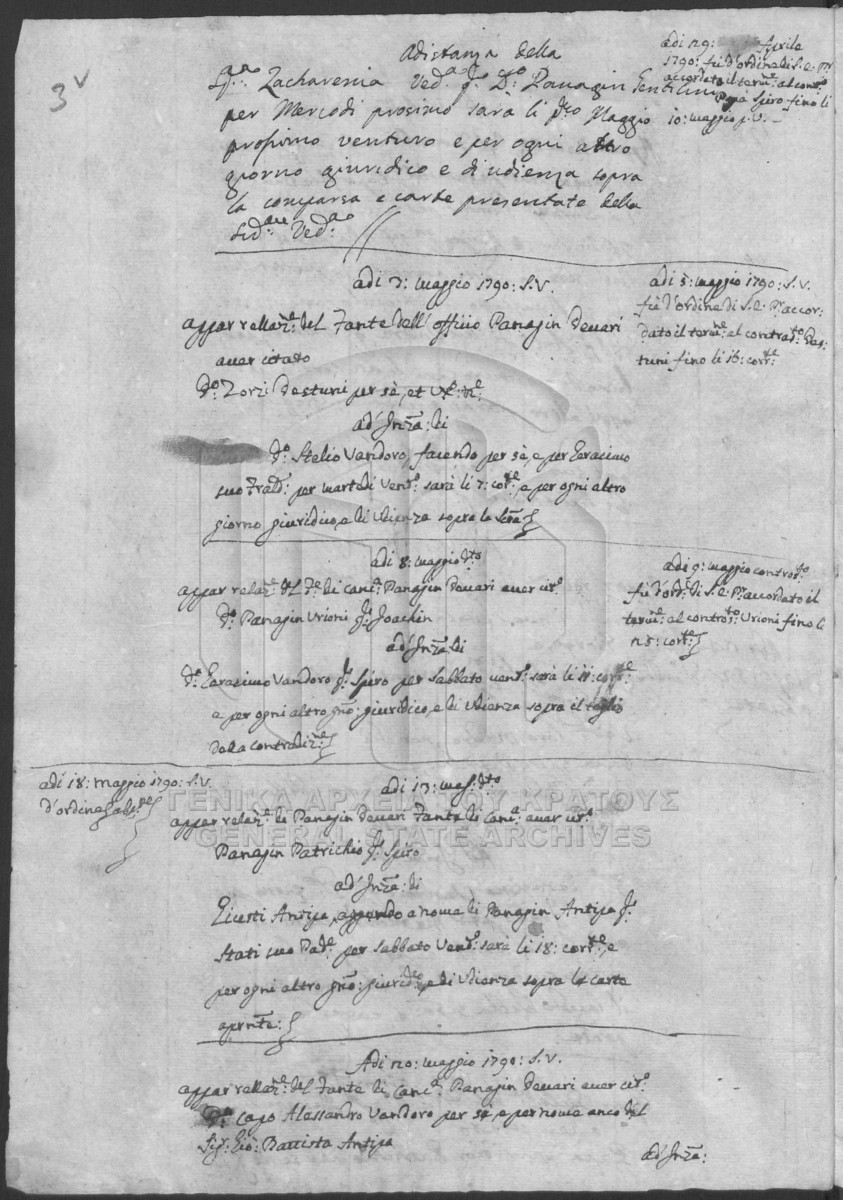 3v
Adistanza della
Sig.ra Zacharenia Ved.a q.m D.o Panagin Gentilini
per Mercodi prosimo sarà li p.mo Maggio
prossimo venturo e per ogni altro
giorno giuridico e d'udienza sopra
la comparsa e carte presentate della
Sud.a Ved.a
adi 29: Aprile
1790: fù d'ordine di S.E. Pr
accordato il term.e al contr.o
Spiro fino li
10: maggio s.v.
adi 3: maggio 1790: S.V.
appar rellaz.e del Fante dell'officio Panagin Devari
aver citato
D.o Zorzi Destuni per sè, et
ad'Jnza: di
D.o Stelio Vandoro, facendo per sè, e per Gerasimo
suo Frad.o per martedi vent.o sarà li 7: cor.te, e per ogni altro
giorno giuridico, e di Udienza sopra la Scra
adi 5: maggio 1790: S.V.
fù d'ordine di S.E. Pr accor
dato il term.e al contras.to Des
tuni fino li 16: corr.te
adi 8: maggio d.to
appar relaz.e del F.e di Canc.a Panagin Devari aver cit.o
D.o Panagin Vrioni q.m Joachin
ad'Jnza: di
D.o Gerasimo Vandoro q.m Spiro per Sabbato vent.o sarà li 11: corr.te
e per ogni altro gno: giuridico, e di Udienza sopra il taglio
della contradiz.e
adi 9: maggio contros.to
fù d'ord.e di S.E. Pr accordato il
term.e al contros.to Vrioni fino li
25: cor.te
adi 18: maggio 1790: S.V.
d'ordine
adi 13: mag. d.to
appar relaz.e di Panagin Devari Fante di Canc.a aver cit.o
Panagin Patrichio q.m Spiro
ad'Jnza: di
Giusti Antipa, aggendo a nome di Panagin Antipa q.m
Stati suo Pad.e per Sabbato Vent.o sarà li 18: corr.te, e
per ogni altro gno: giurid.co, e di Udienza sopra le carte
aprnte:
Adi 20: maggio 1790: S.V.
appar rellaz.e del Fante di Canc.a Panagin Devari aver cit.o
D.o Capo Alessandro Vandoro per sè, e per nome anco del
Sig.r Gio: Battista Antipa
ad'Jnza:
ΓΕΝΙΚΑ ΑΡΧΕΙΑ ΤΟΥ ΚΡΑΤΟΥΣ
GENERAL STATE ARCHIVES